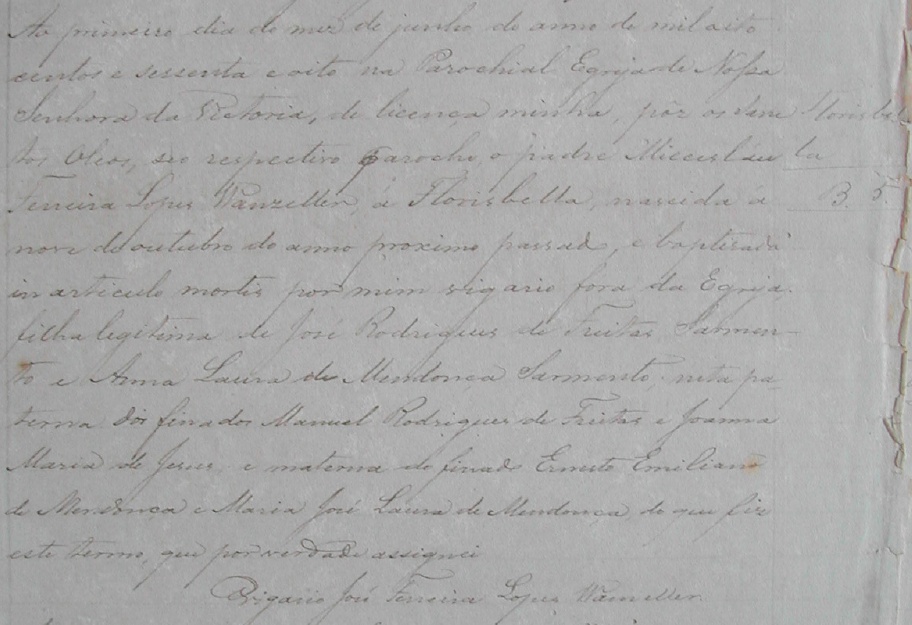 Ao primeiro dia do mez de junho do anno de mil oito
centos e sessenta e oito na Parochial Egreja de Nossa
Senhora da Victoria, de licença minha, pôz os San Florisbel
tos Oleos, seo respectivo Parocho, o padre Miecesláu la
Ferreira Lopes Wanzeller, á Florisbella, nascida á B. 5.
nove de outubro do anno proximo passado, e baptisada
in articulo mortis por mim vigario fora da Egreja,
filha legitima de José Rodrigues de Freitas Sarmen-
to e Anna Laura de Mendonça Sarmento, neta pa
terna dos finados Manuel Rodrigues de Freitas e Joanna
Maria de Jesus, e materna do finado Ernesto Emiliano
de Mendonça e Maria José Laura de Mendonca, do que fiz
este termo, que por verdade assignei
O vigario José Ferreira Lopes Wanzeller